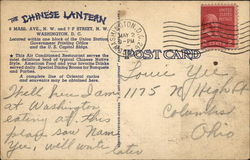 THE CHINESE LANTERN
5 MASS. AVE., N. W. and 7 F STREET, N. W.
WASHINGTON, D. C.
Located within one block of the Union Station
Government Printing Office
and the U. S. Capitol Bldgs.
This Air Conditioned Restaurant serves the
most delicious food of typical Chinese Native
Style. American Food and your favorite Drinks
served daily. Special Dining Rooms for Banquets
and Parties.
A complete line of Oriental curios
and souvenirs may be obtained here.
WASHINGTON, D.C.
MAY 2
PM
POST CARD
Well here I am
at Washington
eating at this
place saw Nam
Yee, will write
later,
Louie Yee
1175 N High St
Columbus
Ohio